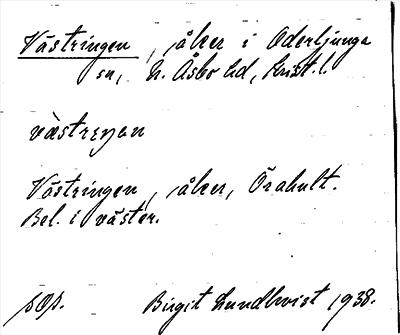 Västringen, åker i Oderljunga
sn, N. Åsbo hd, Krist. l.
västreŋən
Västringen, åker, Örahult.
Bel. i väster.
sOp. Birgit Lundkvist 1938.